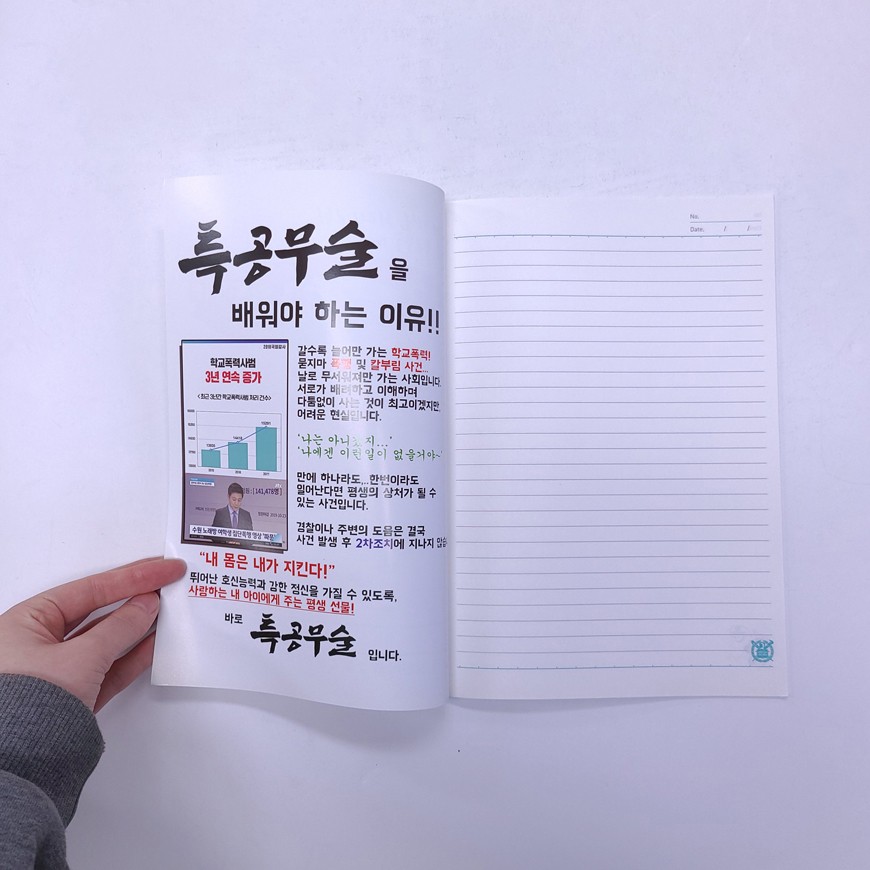 특공무술을
배워야 하는 이유!!
학교폭력사범
3년 연속 증가
<최근 3년간 학교폭력사범 처리 건수>
갈수록 늘어만 가는 학교폭력!
묻지마 폭행 및 칼부림 사건...
날로 무서워져만 가는 사회입니다.
서로가 배려하고 이해하며
다툼없이 사는 것이 최고이겠지만,
어려운 현실입니다.
'나는 아니겠지...'
'나에겐 이런일이 없을거야~'
만에 하나라도,..한번이라도
일어난다면 평생의 상처가 될 수
있는 사건입니다.
경찰이나 주변의 도음은 결국
사건 발생 후 2차조치에 지나지 않습
[141,478명]
수원 노래방 여학생 집단폭행 영상
"내 몸은 내가 지킨다!"
뛰어난 호신능력과 강한 정신을 가질 수 있도록,
사랑하는 내 아이에게 주는 평생 선물!
바로 특공무술 입니다.
No:
Date: / /